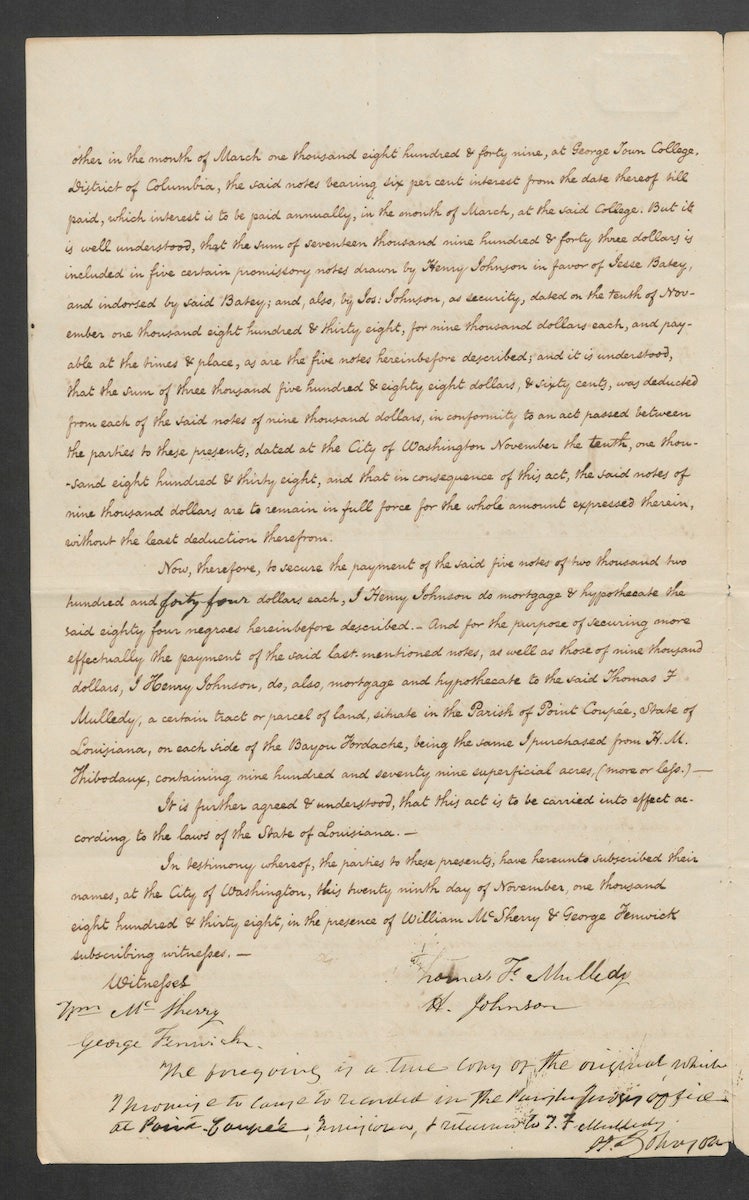 other in the month of March one thousand eight hundred & forty nine, at George Town College,
District of Columbia, the said notes bearing six per cent interest from the date thereof till
paid, which interest is to be paid annually, in the month of March, at the said College. But it
is well understood, that the sum of seventeen thousand nine hundred & forty three dollars is
included in five certain promissory notes drawn by Henry Johnson in favor of Jesse Batey,
and indorsed by said Batey; and, also, by Jos: Johnson, as security, dated on the tenth of Nov-
ember one thousand eight hundred & thirty eight, for nine thousand dollars each, and pay-
able at the times & place, as are the five notes hereinbefore described; and it is understood,
that the sum of three thousand five hundred & eighty eight dollars, & sixty cents, was deducted
from each of the said notes of nine thousand dollars, in conformity to an act passed between
the parties to these presents, dated at the City of Washington November the tenth, one thou-
-sand eight hundred & thirty eight, and that in consequence of this act, the said notes of
nine thousand dollars are to remain in full force for the whole amount expressed therein,
without the least deduction therefrom.
Now, therefore, to secure the payment of the said five notes of two thousand two
hundred and forty four dollars each, I Henry Johnson do mortgage & hypothecate the
said eighty four negroes hereinbefore described. – And for the purpose of securing more
effectually the payment of the said last mentioned notes, as well as those of nine thousand
dollars, I Henry Johnson, do, also, mortgage and hypothecate to the said Thomas F
Mulledy, a certain tract or parcel of land, situate in the Parish of Point Coupée, State of
Louisiana, on each side of the Bayou Fordache, being the same I purchased from H. M.
Thibodaux, containing nine hundred and seventy nine superficial acres, (more or less.) —
It is further agreed & understood, that this act is to be carried into effect ac-
cording to the laws of the State of Louisiana. —
In testimony whereof, the parties to these presents, have hereunto subscribed their
names, at the City of Washington, this twenty ninth day of November, one thousand
eight hundred & thirty eight, in the presence of William McSherry & George Fenwick
subscribing witnesses. —
Witnesses
Thomas F. Mulledy
Wm McSherry
H. Johnson
George Fenwick.
The foregoing is a true copy of the original which
I promise to cause to recorded in the Parish Judges office
at Point Coupée, & return to T. F Mulledy
H. Johnson